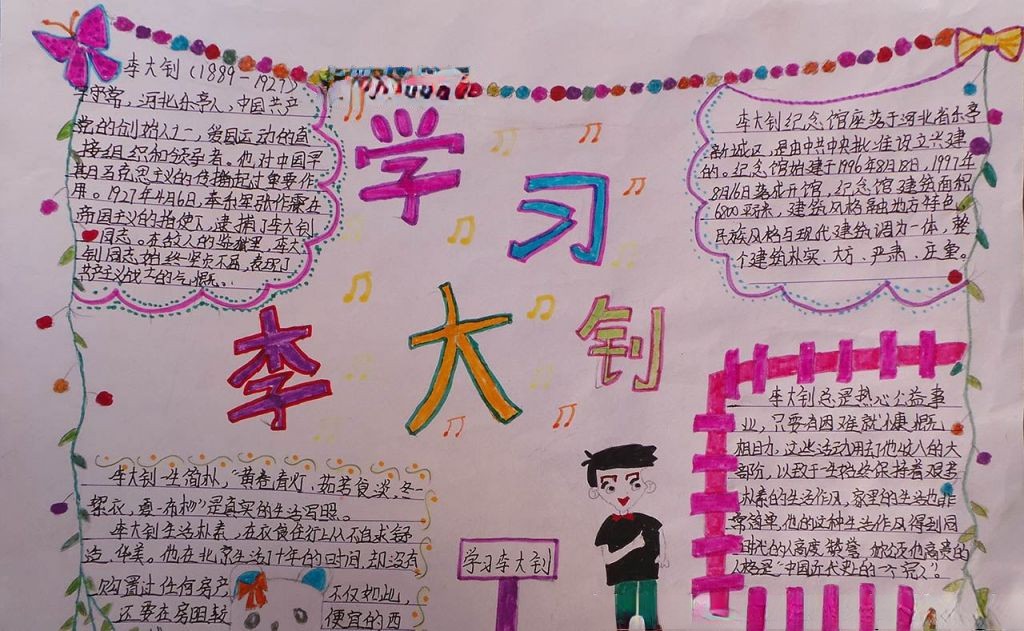 李大钊（1889-1927）
字守常，河北乐亭人，中国共产
党的创始人之一，爱国运动的直
接组织和领导者。他对中国早
期马克思主义的传播起过重要作
用。1927年4月6日，奉系军张作霖在
帝国主义的指使下，逮捕了李大钊
同志。在敌人的监狱里，李大
钊同志始终坚贞不屈，表现了
共产主义战士的气概。
学习
李大钊
李大钊纪念馆座落于河北省乐亭
新城区，是由中共中央批准设立兴建
的。纪念馆始建于1996年8月18日，1997年
8月16日落成开馆，纪念馆建筑面积
6800平方米，建筑风格融地方特色
民族风格与现代建筑调为一体，整
个建筑朴实、大方、严肃、庄重。
李大钊总是热心公益事
业，只要有困难就慷慨
相助，这些活动用去了他收入的大
部分，以致于一生始终保持着艰苦
朴素的生活作风，家里的生活也非
常简单，他的这种生活作风得到同
时代的人高度赞誉
人格是"中国近代史的一个完人"。
李大钊一生简朴，"黄卷青灯，茹苦食淡，冬一
絮衣，夏一布衫"是真实的生活写照。
李大钊生活朴素，在衣食住行上从不追求舒
适、华美。他在北京生活了十年的时间，却没有
购置过任何房产
不仅如此，
还要在房田契
便宜的西
学习李大钊